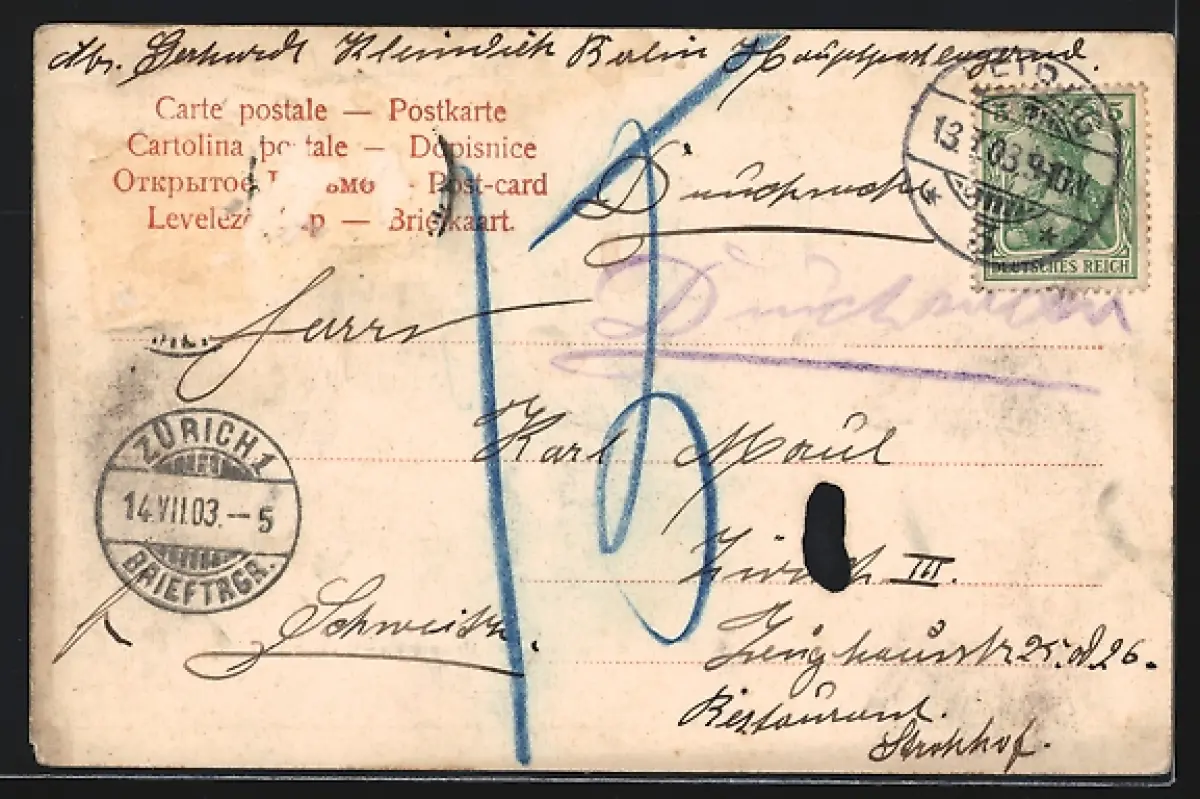 Abs. Gerhardt Berlin Hauptpostlagernd.
Carte postale — Postkarte
Cartolina postale — Dopisnice
Открытое Письмо - Post-card
Levelező-Lap — Briefkaart.
Drucksache
LEIPZIG
13.7.03.9-10N.
5
DEUTSCHES REICH
Drucksache
15
Herrn
Karl Maul
ZÜRICH 1
14.VII.03.-5
BRIEFTRGR.
Zürich III.
Schweiz.
Zeughausstr 25. od 26.
Restaurant.
Strohhof.